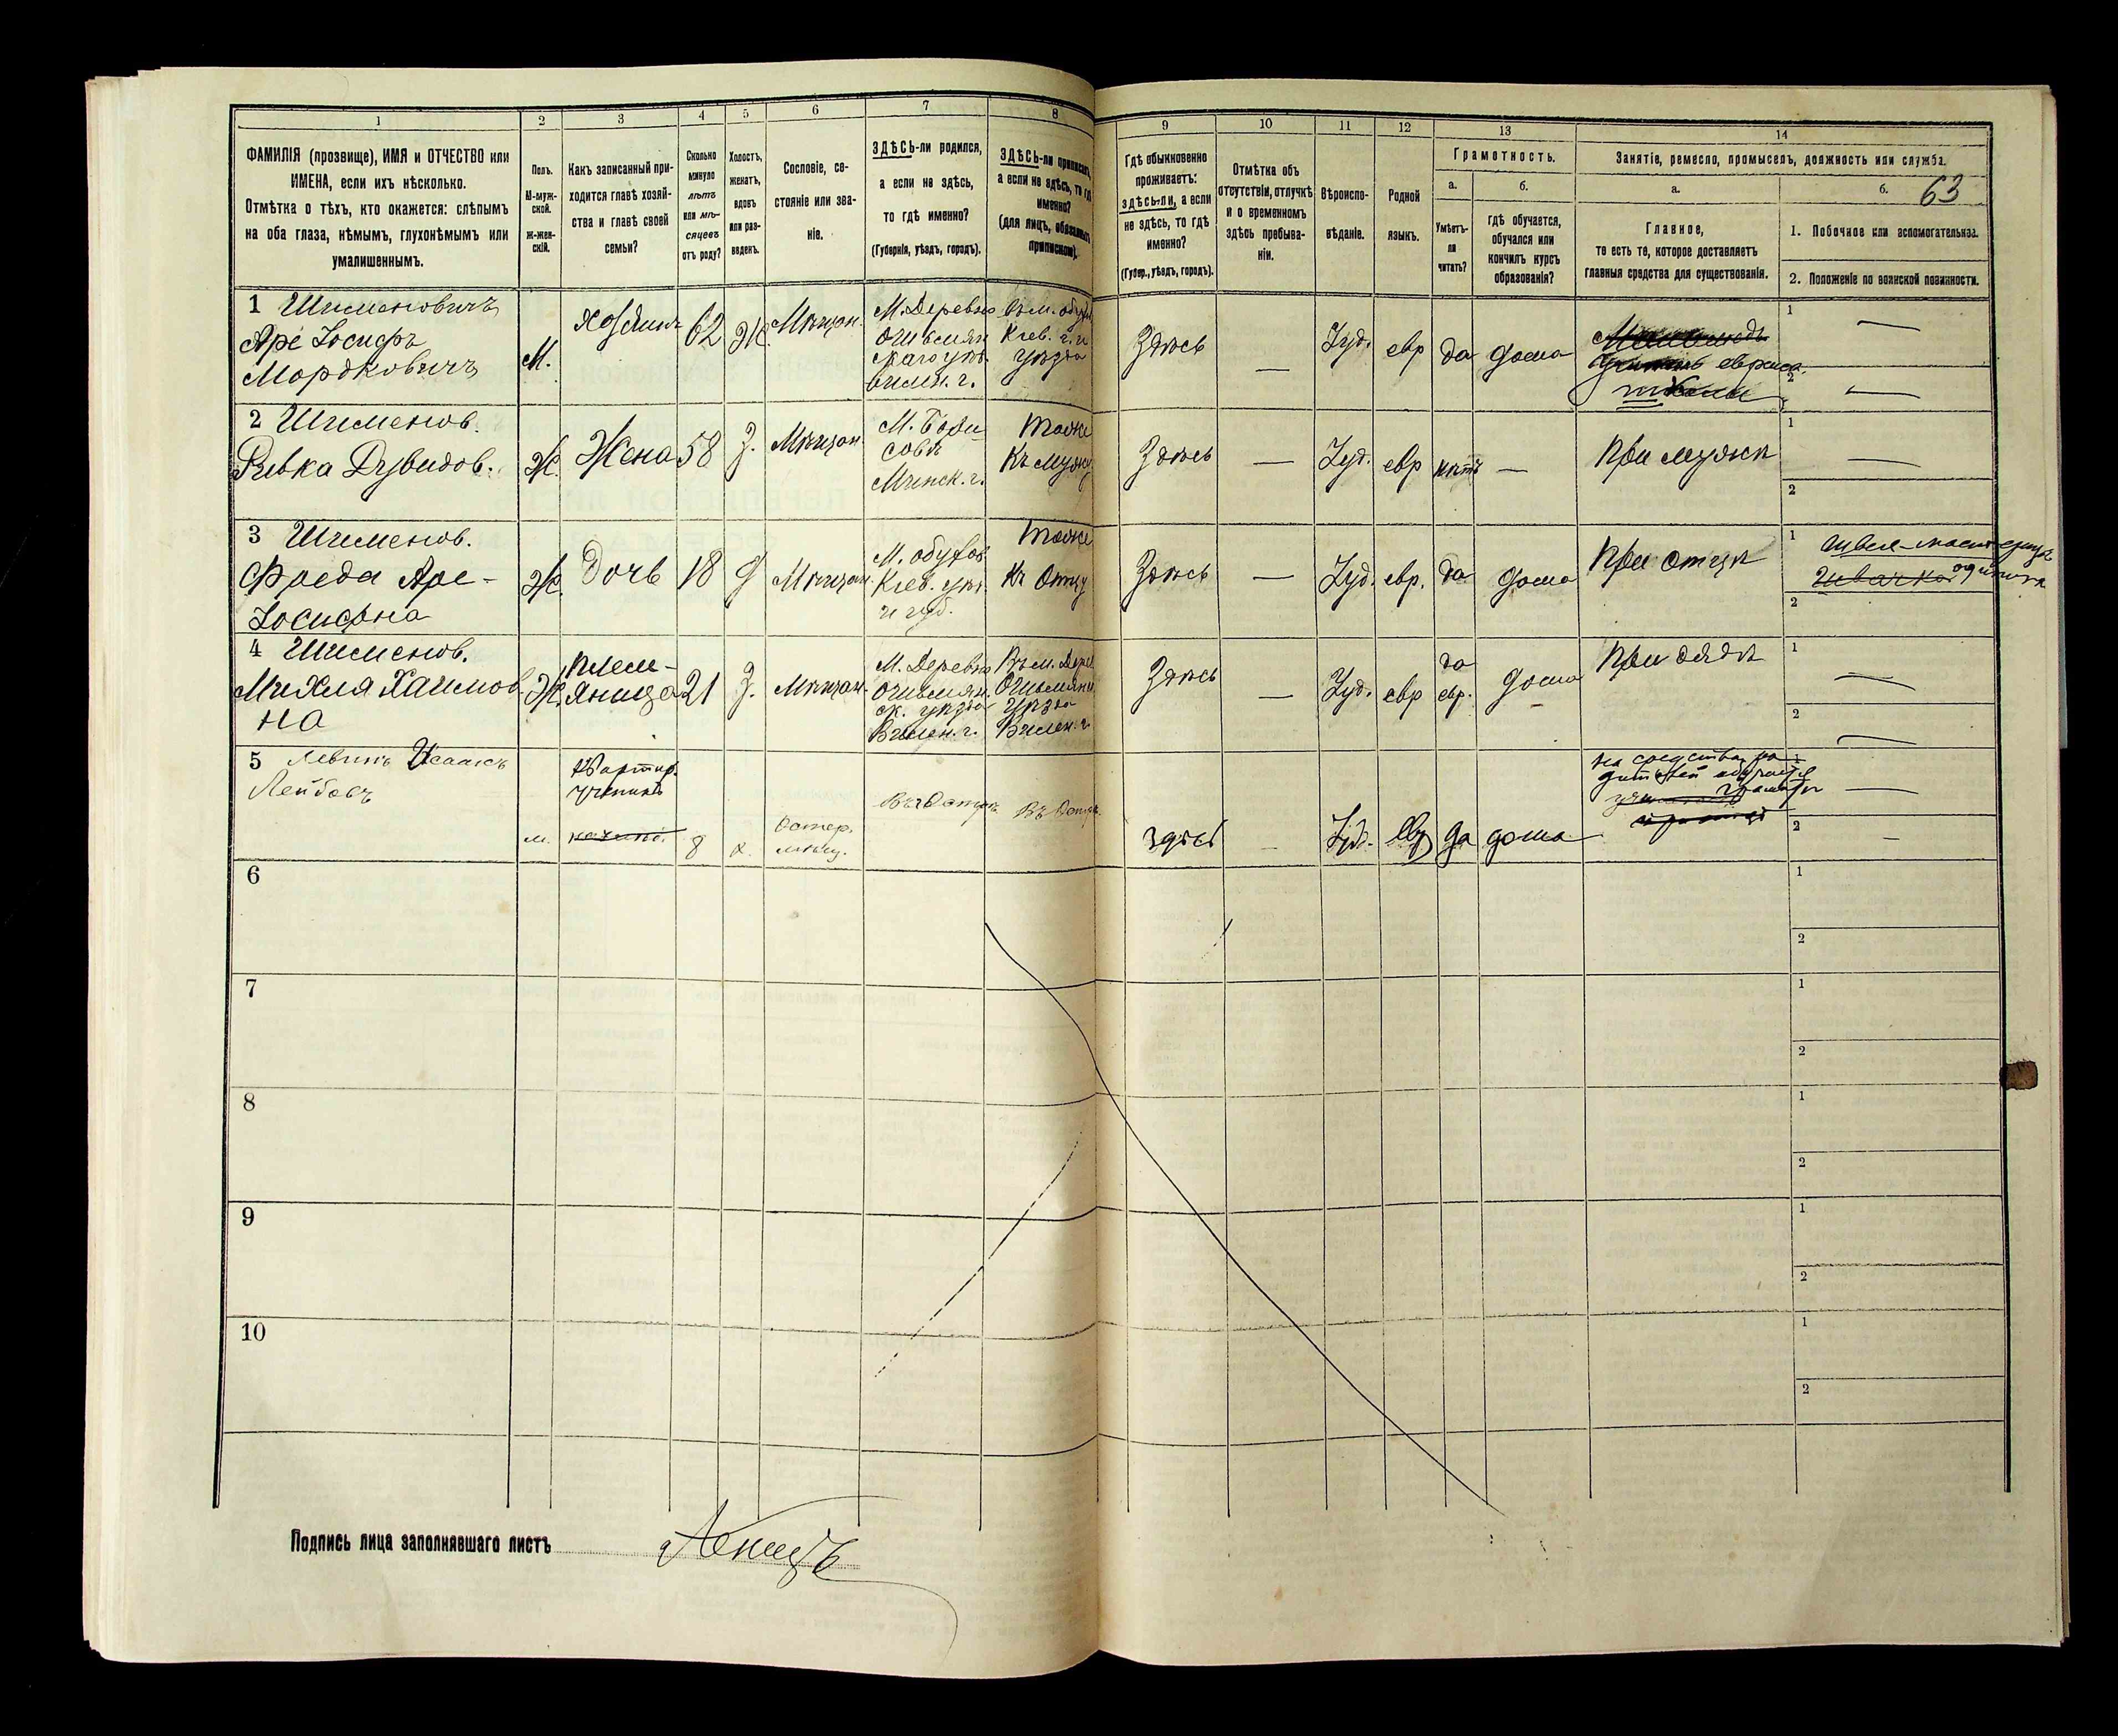 1 2 3 4 5 6 7 8 9 10 11 12 13 14
63
ФАМИЛІЯ (прозвище), ИМЯ и ОТЧЕСТВО или
ИМЕНА, если ихъ нѣсколько.
Отмѣтка о тѣхъ, кто окажется: слѣпымъ
на оба глаза, нѣмымъ, глухонѣмымъ или
умалишеннымъ.
Полъ.
М-муж-
ской.
Ж-жен-
скій.
Какъ записанный при-
ходится главѣ хозяй-
ства и главѣ своей
семьи?
Сколько
минуло
лѣтъ
или мѣ-
сяцевъ
отъ роду?
Холостъ,
женатъ,
вдовъ
или раз-
веденъ.
Сословіе, со-
стояніе или зва-
ніе.
ЗДѢСЬ-ли родился,
а если не здѣсь,
то гдѣ именно?
(Губернія, уѣздъ, городъ).
ЗДѢСЬ-ли приписанъ,
а если не здѣсь, то гдѣ
именно?
(для лицъ, обязанныхъ
припиской).
Гдѣ обыкновенно
проживаетъ:
здѣсь-ли, а если
не здѣсь, то гдѣ
именно?
(Губер., уѣздъ, городъ).
Отмѣтка объ
отсутствіи, отлучкѣ
и о временномъ
здѣсь пребыва-
ніи.
Вѣроиспо-
вѣданіе.
Родной
языкъ.
Грамотность.
а.
Умѣетъ-
ли
читать?
б.
гдѣ обучается,
обучался или
кончилъ курсъ
образованія?
Занятіе, ремесло, промыселъ, должность или служба.
а.
Главное,
то есть то, которое доставляетъ
главныя средства для существованія.
б.
1. Побочное или вспомогательное.
2. Положеніе по воинской повинности.
1 Шименовичъ
Аре Іосифъ
Мордковичъ
М.
хозяинъ
62
Ж.
Мѣщан.
М. Деревно
Ошмян
скаго уѣз
вилен. г.
Въ м. обух
Кіев. г. и
уѣзда
Здѣсь
—
Іуд.
евр
да
дома
еврейск.
школы
1 —
2 —
2 Шименов.
Ривка Дувидов.
Ж.
Жена
58
З.
Мѣщан.
М. Бори-
совѣ
Минск. г.
тоже
Къ мужу
Здѣсь
—
Іуд.
евр
нѣтъ
—
при мужѣ
1 —
2
3 Шименов.
Фрeда Аре-
Іосифна
Ж.
Дочь
18
Д
Мѣщан.
М. обухов
Кіев. уѣз.
и губ.
тоже
Къ Отцу
Здѣсь
—
Іуд.
евр.
да
дома
при отцѣ
1 швея-мастерица
швачка одиночка
2
4 Шименов.
Михля Хаимов
на
Ж.
племе-
яница
21
З.
Мѣщан.
М. Деревно
Ошмян.
ск. уѣзда
Вилен. г.
Въ м. Дерев
Ошмянск
уѣзда
Вилен. г.
Здѣсь
—
Іуд.
евр
да
евр.
дома
при дядѣ
1 —
2 —
5 Левинъ Исаакъ
Лейбовъ
м.
Квартир.
ученикъ
8
х.
Остер.
мѣщ.
Въ г Остерѣ
Въ Остерѣ
здѣсь
—
Іуд.
Евр
да
дома
на средства ро-
дителей обучается
грамотѣ
1 —
2 —
6
1
2
7
1
2
8
1
2
9
1
2
10
1
2
Подпись лица заполнявшаго листъ